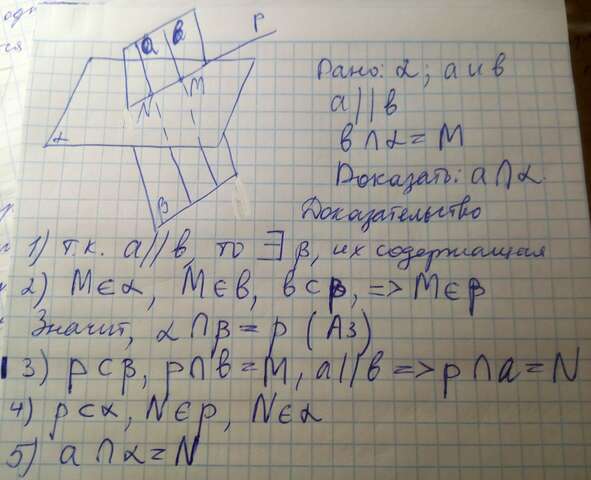 a
b
P
N
M
α
β
Дано: α; a и b
a||b
b∩α=M
Доказать: a∩α
Доказательство
1) т.к. a||b, то ∃β, их содержащая
2) M∈α, M∈b, b⊂β, => M∈β
Значит, α∩β=p (A3)
3) p⊂β, p∩b=M, a||b => p∩a=N
4) p⊂α, N∈p, N∈α
5) a∩α=N